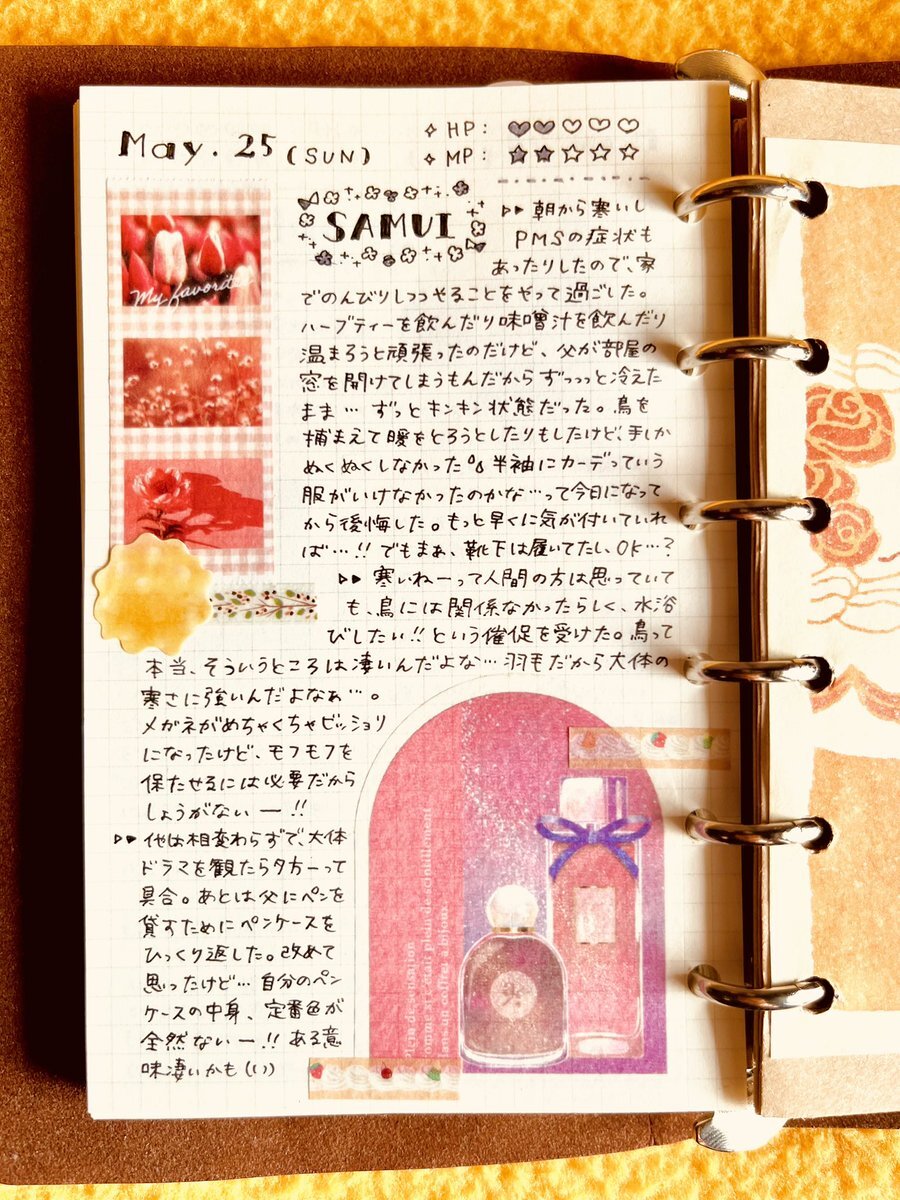 May. 25 (SUN)
✧ HP: ♥♥♡♡♡
✧ MP: ★★☆☆☆
My favorite
SAMUI
▷▶ 朝から寒いし
PMSの症状も
あったりしたので、家
でのんびりしつつやることをやって過ごした。
ハーブティーを飲んだり味噌汁を飲んだり
温まろうと頑張ったのだけど、父が部屋の
窓を開けてしまうもんだからずっっっと冷えた
まま… ずっとキンキン状態だった。鳥を
捕まえて暖をとろうとしたりもしたけど、手しか
ぬくぬくしなかった 半袖にカーデっていう
服がいけなかったのかな…って今日になって
から後悔した。もっと早くに気が付いていれ
ば…!! でもまぁ、靴下は履いてたし、OK…?
▷▶ 寒いねーって人間の方は思っていて
も、鳥には関係なかったらしく、水浴
びしたい!!という催促を受けた。鳥って
本当、そういうところは凄いんだよな… 羽毛だから大体の
寒さに強いんだよなぁ…。
メガネがめちゃくちゃビッショリ
になったけど、モフモフを
保たせるには必要だから
しょうがないー!!
▷▶ 他は相変わらずで、大体
ドラマを観たら夕方ーって
具合。あとは父にペンを
貸すためにペンケースを
ひっくり返した。改めて
思ったけど… 自分のペン
ケースの中身、定番色が
全然ないー!! ある意
味凄いかも(い)
Plein de sensation
comme un étui plein de scintillement
dans un coffret à bijoux